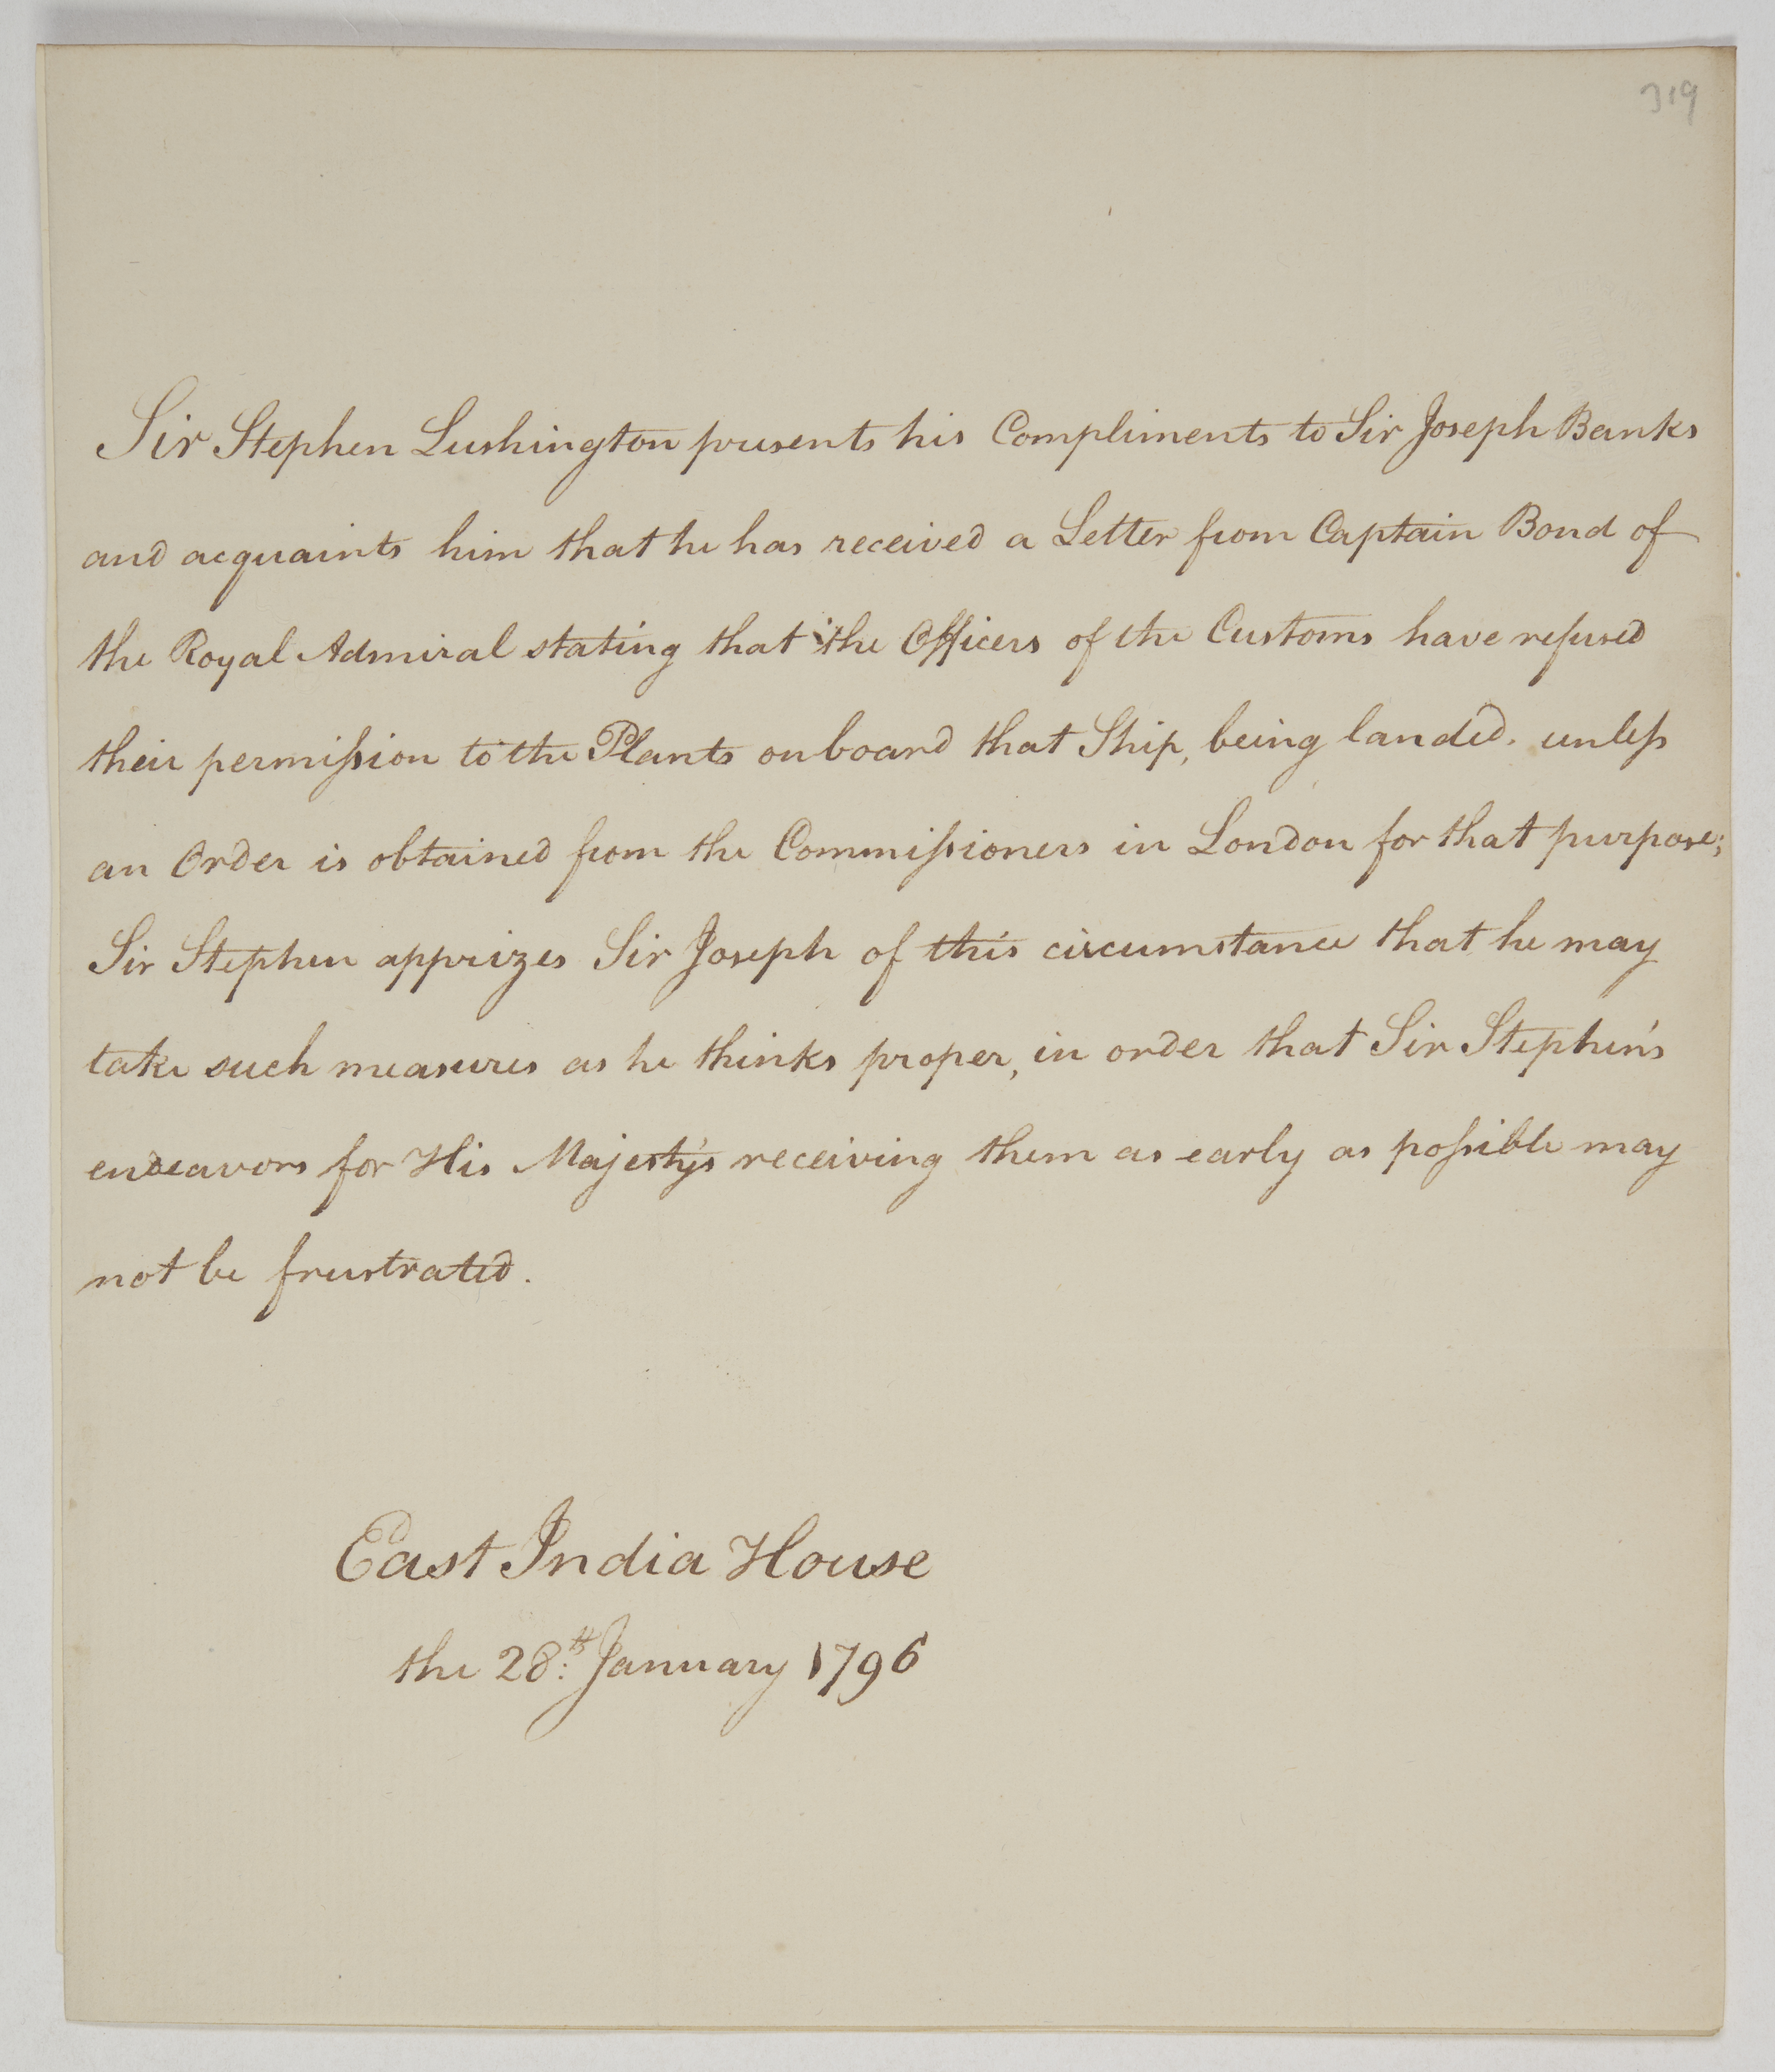 319
Sir Stephen Lushington presents his Compliments to Sir Joseph Banks
and acquaints him that he has received a Letter from Captain Bond of
the Royal Admiral stating that the Officers of the Customs have refused
their permiſsion to the Plants onboard that Ship, being landed. unleſs
an Order is obtained from the Commiſsioners in London for that purpose;
Sir Stephen apprizes Sir Joseph of this circumstance that he may
take such measures as he thinks proper, in order that Sir Stephen's
endeavors for His Majesty's receiving them as early as poſsible may
not be frustrated.
East India House
the 28th: January 1796